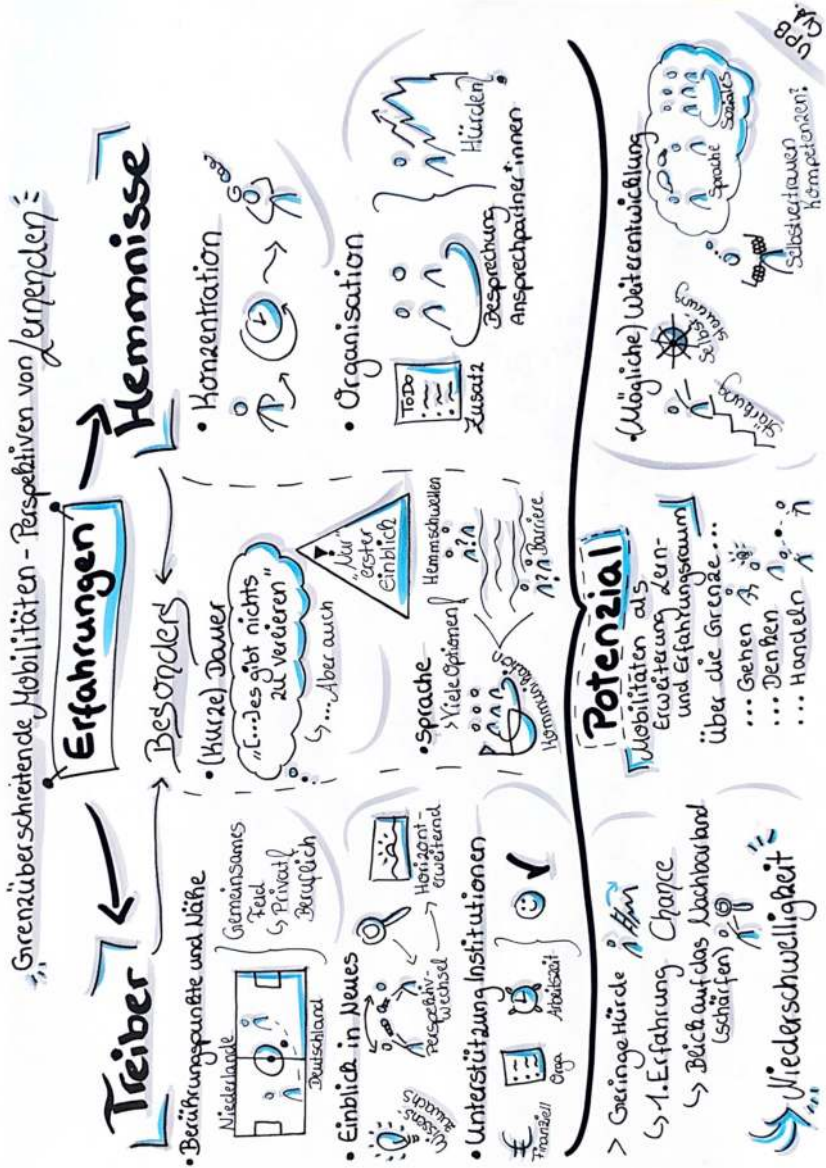 Grenzüberschreitende Mobilitäten - Perspektiven von Lernenden
Erfahrungen
Treiber
Besonders
Hemmnisse
• Berührungspunkte und Nähe
Niederlande
Deutschland
Gemeinsames
Feld
↳ Privat
Beruflich
• Einblick in Neues
Wissens-
zuwachs
Perspektiv-
wechsel
Horizont-
erweiternd
• Unterstützung Institutionen
€
Finanziell
Orga
Arbeitszeit
• (Kurze) Dauer
„[...]es gibt nichts
zu verlieren"
↳ ... Aber auch
"Nur"
erster
Einblick
• Sprache
> Viele Optionen
Kommunikation
Hemmschwellen
?
? Barriere
• Konzentration
• Organisation
ToDo
Zusatz
Besprechung
Ansprechpartner*innen
Hürden
> Geringe Hürde
↳ 1. Erfahrung Chance
↳ Blick auf das Nachbarland
(schärfen)
Niederschwelligkeit
Potenzial
Mobilitäten als
Erweiterung Lern-
und Erfahrungsraum
Über die Grenze...
... Gehen
... Denken
... Handeln
• (Mögliche) Weiterentwicklung
Stärkung
Selbst-
steuerung
Sprache
Soziales
Selbstvertrauen
Kompetenzen?
UPB